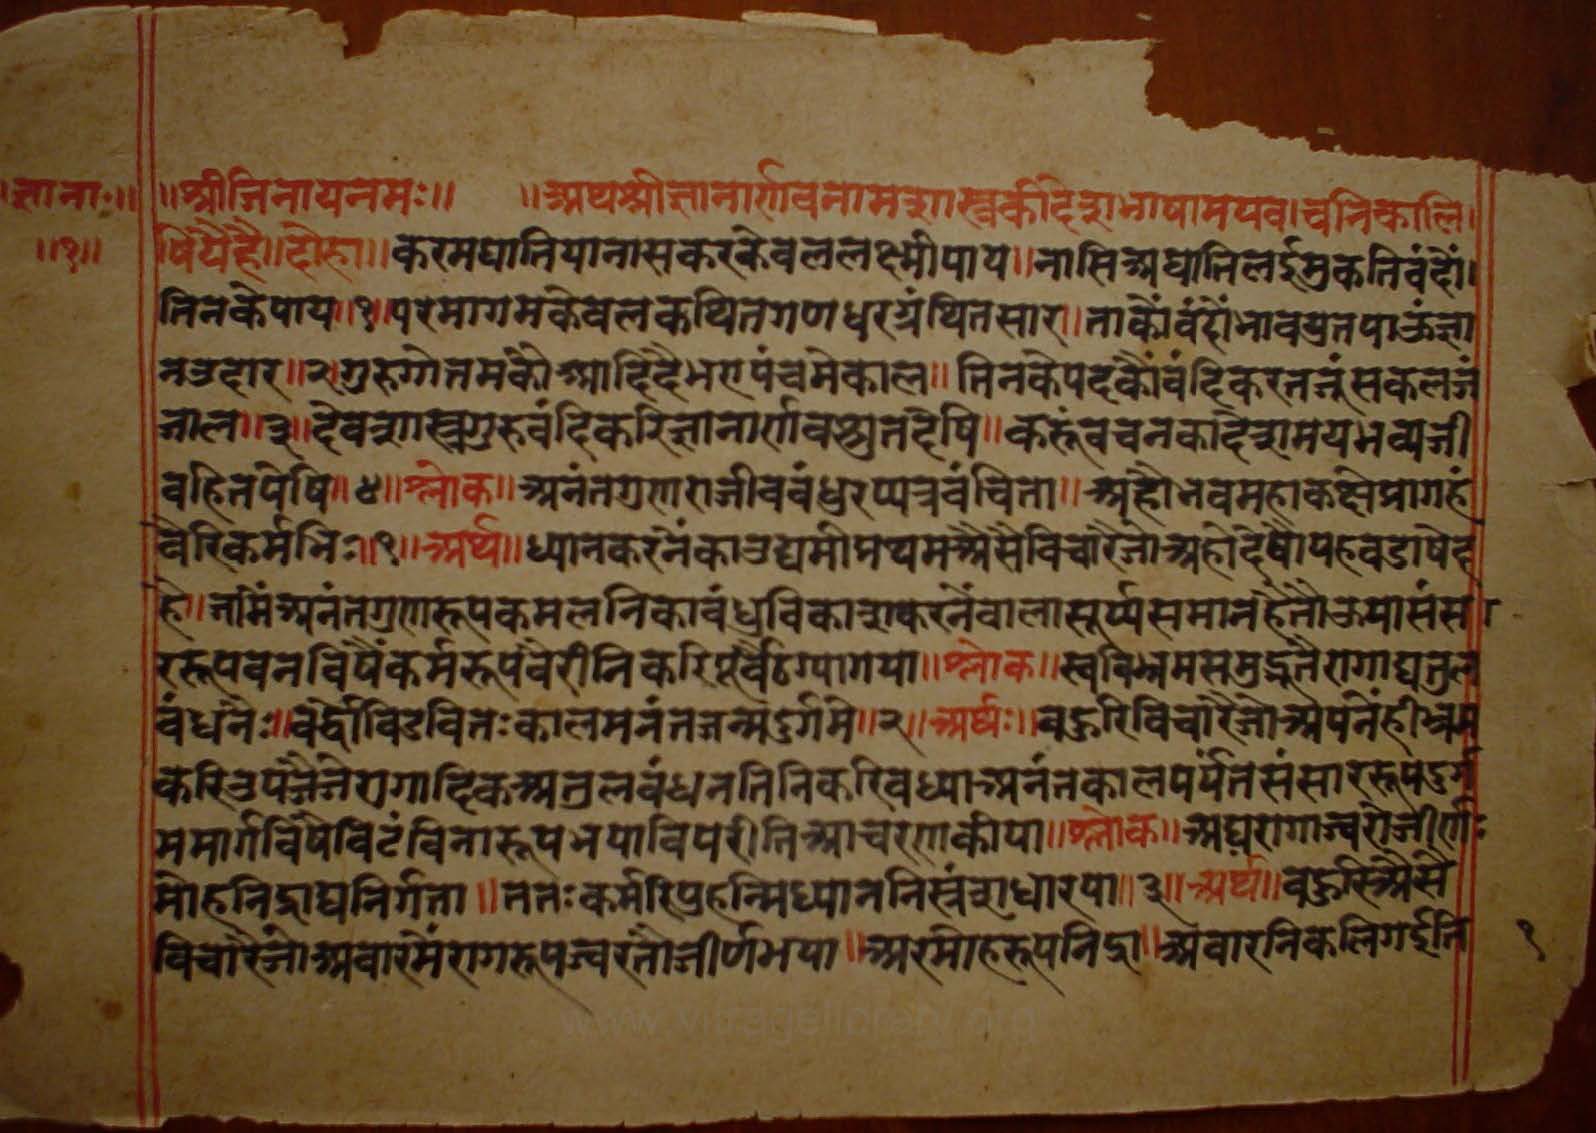 ।ज्ञाना॰॥ ॥श्रीजिनायनमः॥ ॥अथश्रीज्ञानार्णवनामशास्त्रकीदेशभाषामयवचनिकालि।
॥१॥ षियैहै॥दोहा॥करमघातियानासकरकेवललक्ष्मीपाय॥नासिअघातिलईमुकतिवंदौं।
तिनकेपाय॥१॥परमागमकेवलकथितगणधरग्रंथितसार॥ताकौंवंदौंभावयुतपाऊंज्ञा
नउदार॥२॥गुरुगौतमकौंआदिदैभएपंचमेकाल॥तिनकेपदकौंवंदिकरतजूंसकलजं
जाल॥३॥देवशास्त्रगुरुवंदिकरिज्ञानार्णवश्रुतदेषि॥कहूंवचनकादेशमयभव्यजी
वहितपेषि॥४॥श्लोक॥अनंतगुणराजीवबंधुरप्यत्रवंचिता॥अहोभवमहाकक्षेप्रागहं
वैरिकर्मभिः॥१॥अर्थ॥ध्यानकरनेंकाउद्यमीप्रथमअैसैविचारैजोअहोदेषौयहवडाषेद
है॥जोमैंअनंतगुणरूपकमलनिकाबंधुविकाशकरनैंवालासूर्य्यसमानहूंतौऊयासंसा
ररूपवनविषैंकर्मरूपवैरीनिकरिपूर्वैठग्यागया॥श्लोक॥स्वविभ्रमसमुद्भूतैरागाद्यतुल
बंधनैः॥बद्धोविडंवितःकालमनंतजन्मदुर्गमे॥२॥अर्थः॥बहुरिविचारैजोअपनेंहीभ्रम
करिउपजैजेरागादिकअतुलबंधनतिनिकरिबध्याअनंतकालपर्यंतसंसाररूपदुर्ग
ममार्गविषैविटंविनारूपभयाविपरीतिआचरणकीया॥श्लोक॥अद्यरागाज्वरोजीर्णा॰
मोहनिद्राद्यनिर्गता॥ततःकर्मरिपुहन्मिध्याननिस्त्रंशधारया॥३॥अर्थ॥बहुरिअैसै
विचारैजोअवारमैंरागरूपज्वरतौजीर्णभया॥अरमोहरूपनिद्रा॥अवारनिकलिगईति १
www.vidragelibrary.org